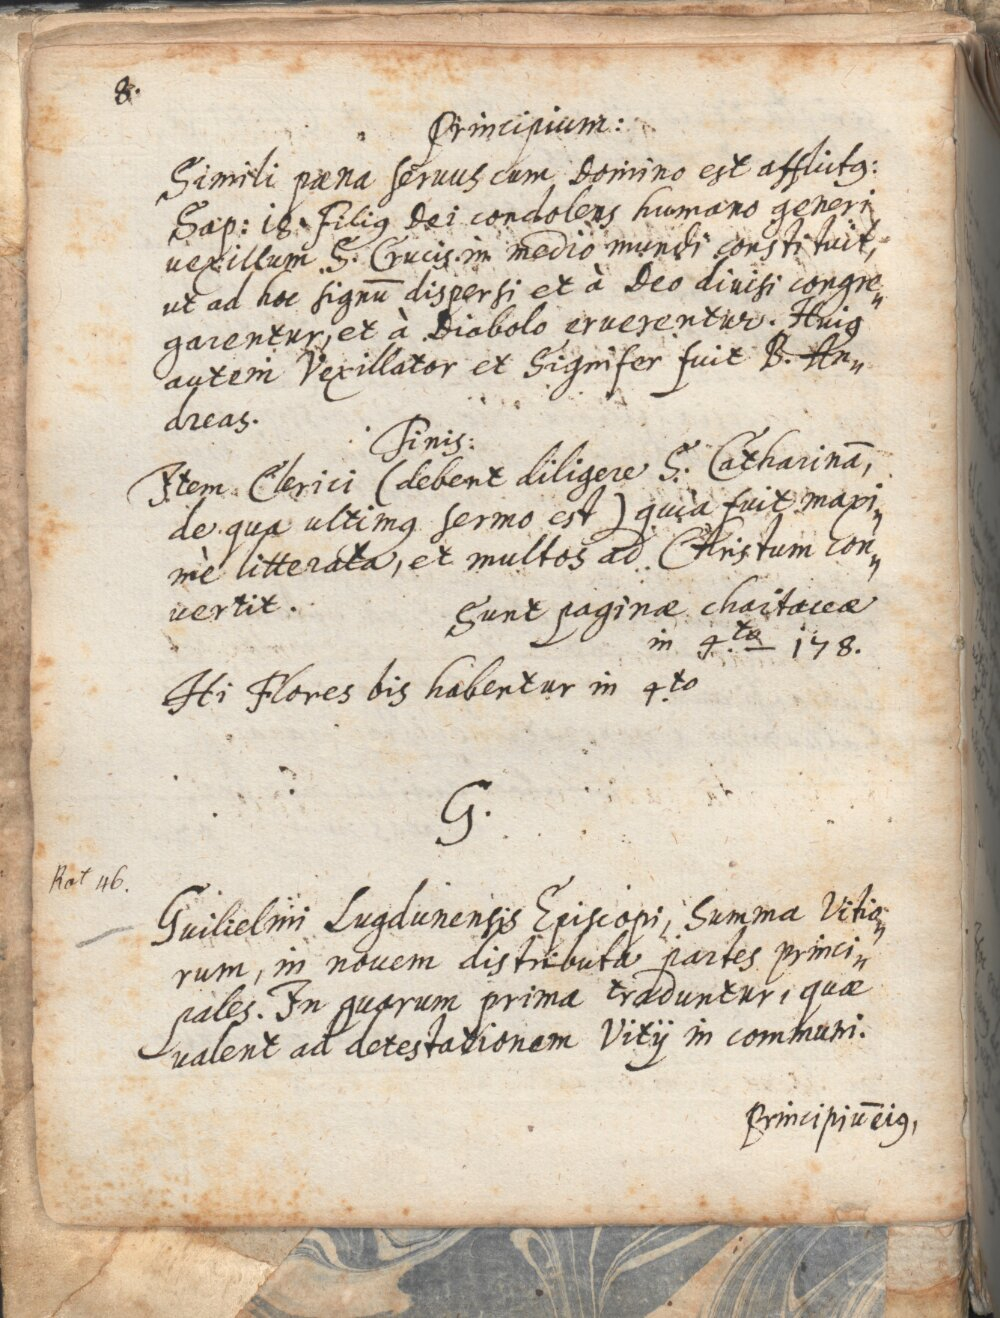 8.
Principium:
Simili pæna servus cum Domino est afflictꝰ:
Sap: 18. Filiꝰ Dei condolens humano generi
vexillum S. Crucis in medio mundi constituit,
ut ad hoc signū dispersi et à Deo divisi congre„
garentur, et à Diabolo eruerentur. Huiꝰ
autem Vexillator et Signifer fuit B. An„
dreas.
Finis:
Item Clerici (debent diligere S. Catharinā,
de qua ultimꝰ sermo est) quia fuit maxi„
mè litterata, et multos ad Christum con„
vertit.
Sunt paginæ chartaceæ
in 4.to 178.
Hi Flores bis habentur in 4to
G.
Rot 46.
Guilielmi Lugdunensis Episcopi, Summa Vitio„
rum, in novem distributa partes princi„
pales. In quarum prima traduntur, quæ
valent ad detestationem Vitij in communi.
Principiū eiꝰ,